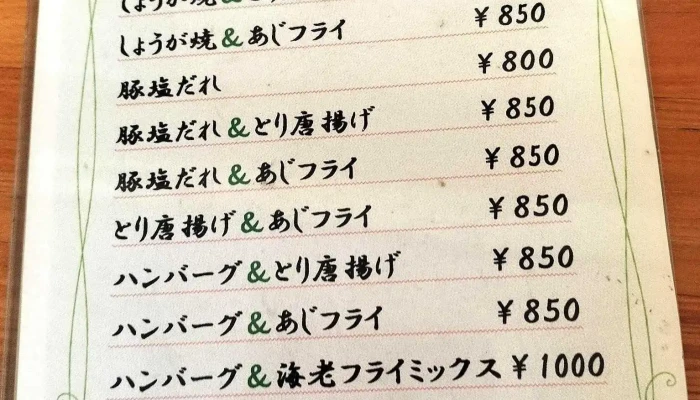 しょうが焼&
しょうが焼&あじフライ ￥850
豚塩だれ ￥800
豚塩だれ&とり唐揚げ ￥850
豚塩だれ&あじフライ ￥850
とり唐揚げ&あじフライ ￥850
ハンバーグ&とり唐揚げ ￥850
ハンバーグ&あじフライ ￥850
ハンバーグ&海老フライミックス ￥1000